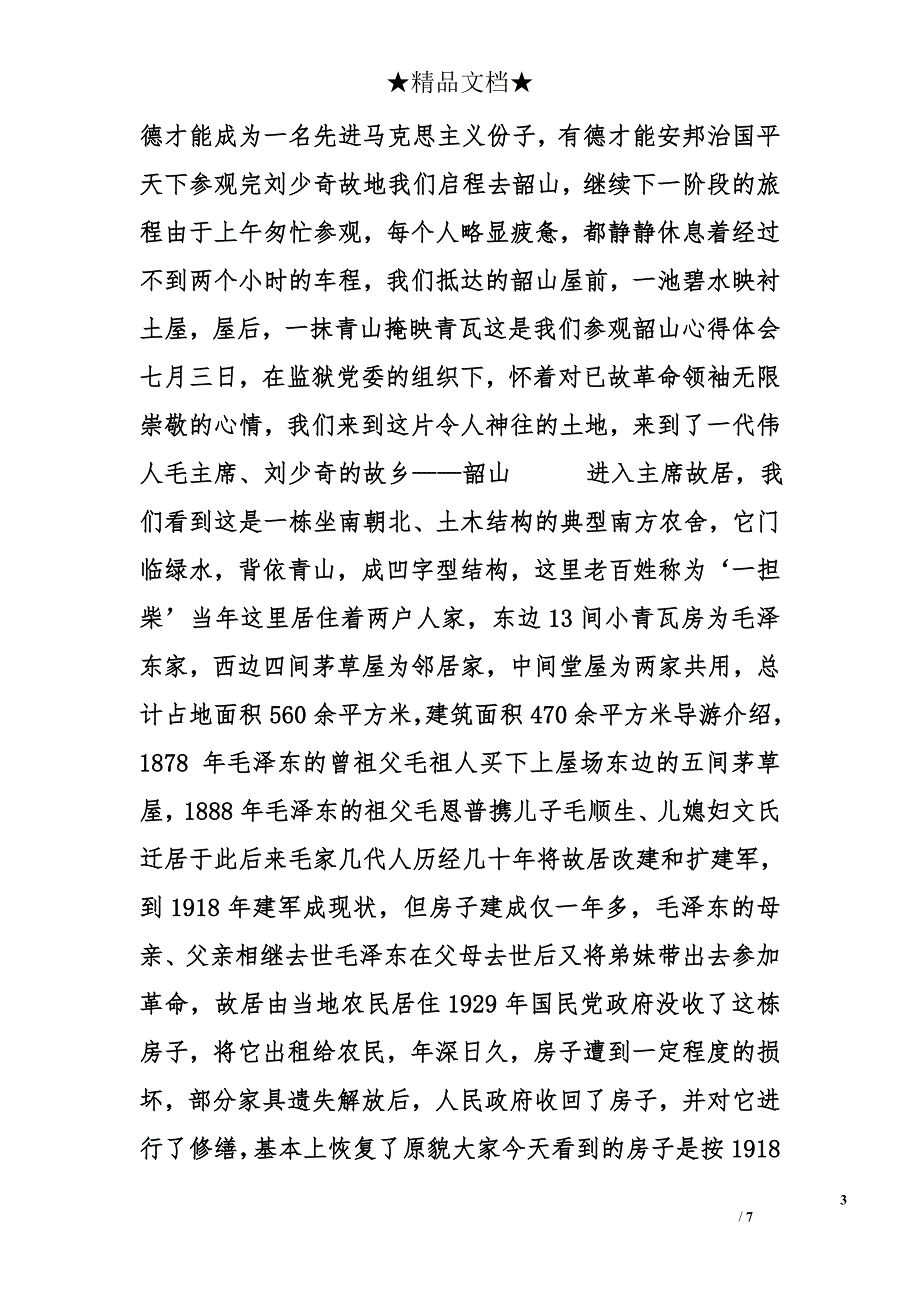 ★精品文档★
德才能成为一名先进马克思主义份子，有德才能安邦治国平
天下参观完刘少奇故地我们启程去韶山，继续下一阶段的旅
程由于上午匆忙参观，每个人略显疲惫，都静静休息着经过
不到两个小时的车程，我们抵达的韶山屋前，一池碧水映衬
土屋，屋后，一抹青山掩映青瓦这是我们参观韶山心得体会
七月三日，在监狱党委的组织下，怀着对已故革命领袖无限
崇敬的心情，我们来到这片令人神往的土地，来到了一代伟
人毛主席、刘少奇的故乡——韶山　　　进入主席故居，我
们看到这是一栋坐南朝北、土木结构的典型南方农舍，它门
临绿水，背依青山，成凹字型结构，这里老百姓称为‘一担
柴’当年这里居住着两户人家，东边 13 间小青瓦房为毛泽
东家，西边四间茅草屋为邻居家，中间堂屋为两家共用，总
计占地面积 560 余平方米，建筑面积 470 余平方米导游介绍，
1878 年毛泽东的曾祖父毛祖人买下上屋场东边的五间茅草
屋，1888 年毛泽东的祖父毛恩普携儿子毛顺生、儿媳妇文氏
迁居于此后来毛家几代人历经几十年将故居改建和扩建军，
到 1918 年建军成现状，但房子建成仅一年多，毛泽东的母
亲、父亲相继去世毛泽东在父母去世后又将弟妹带出去参加
革命，故居由当地农民居住 1929 年国民党政府没收了这栋
房子，将它出租给农民，年深日久，房子遭到一定程度的损
坏，部分家具遗失解放后，人民政府收回了房子，并对它进
行了修缮，基本上恢复了原貌大家今天看到的房子是按 1918
3
/ 7